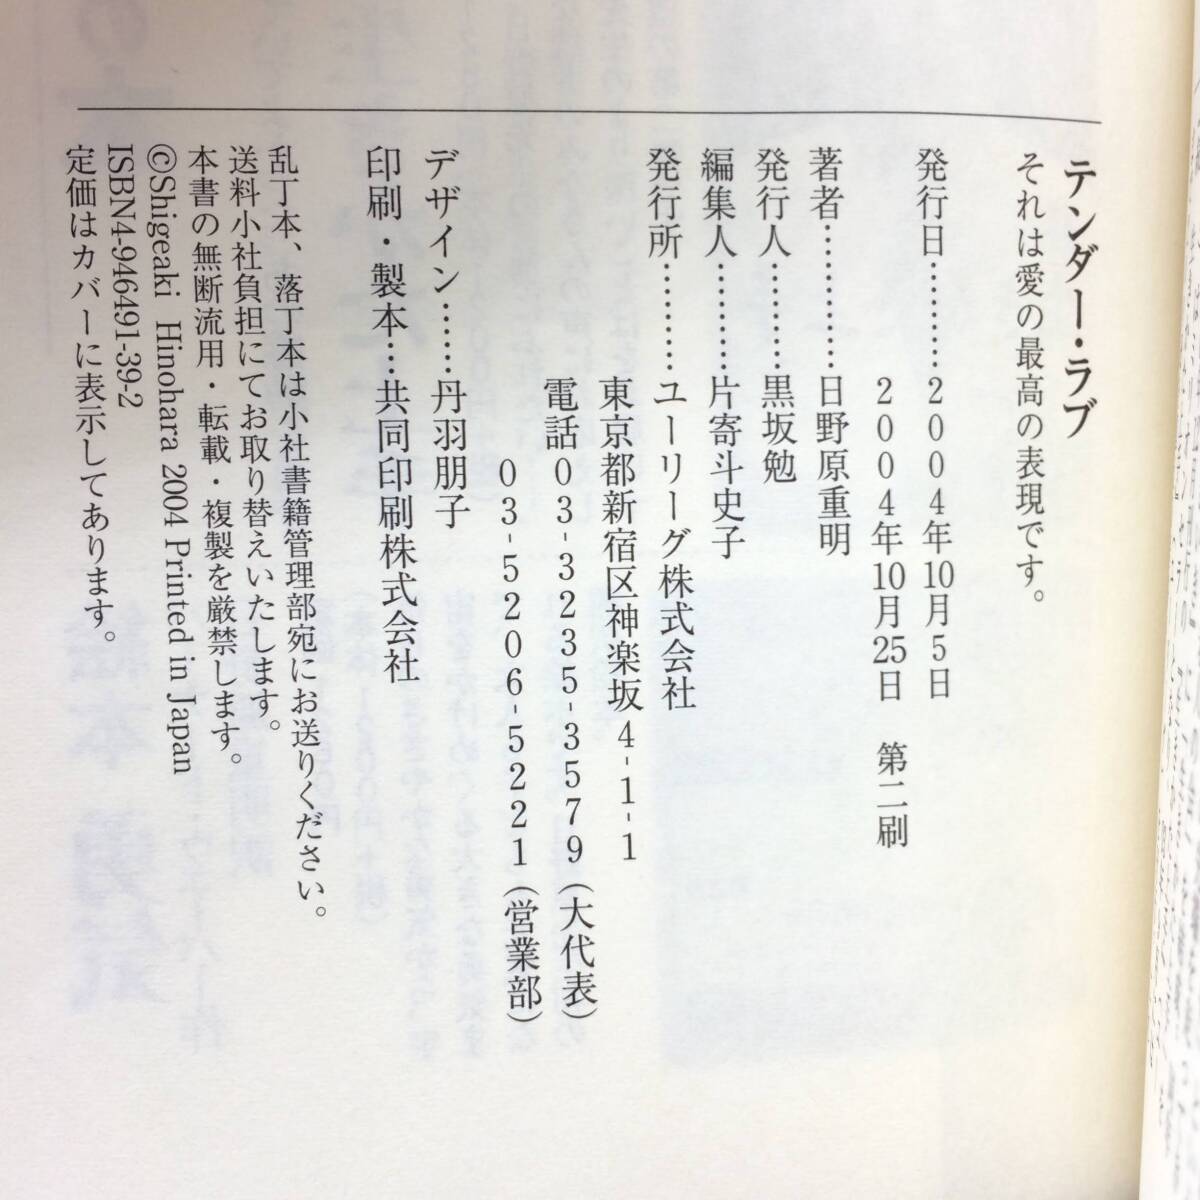 テンダー・ラブ
それは愛の最高の表現です。
発行日…………2004年10月5日
2004年10月25日　第二刷
著者……………日野原重明
発行人…………黒坂勉
編集人…………片寄斗史子
発行所…………ユーリーグ株式会社
東京都新宿区神楽坂4-1-1
電話03-3235-3579（大代表）
03-5206-5221（営業部）
デザイン……丹羽朋子
印刷・製本…共同印刷株式会社
乱丁本、落丁本は小社書籍管理部宛にお送りください。
送料小社負担にてお取り替えいたします。
本書の無断流用・転載・複製を厳禁します。
©Shigeaki Hinohara 2004 Printed in Japan
ISBN4-946491-39-2
定価はカバーに表示してあります。